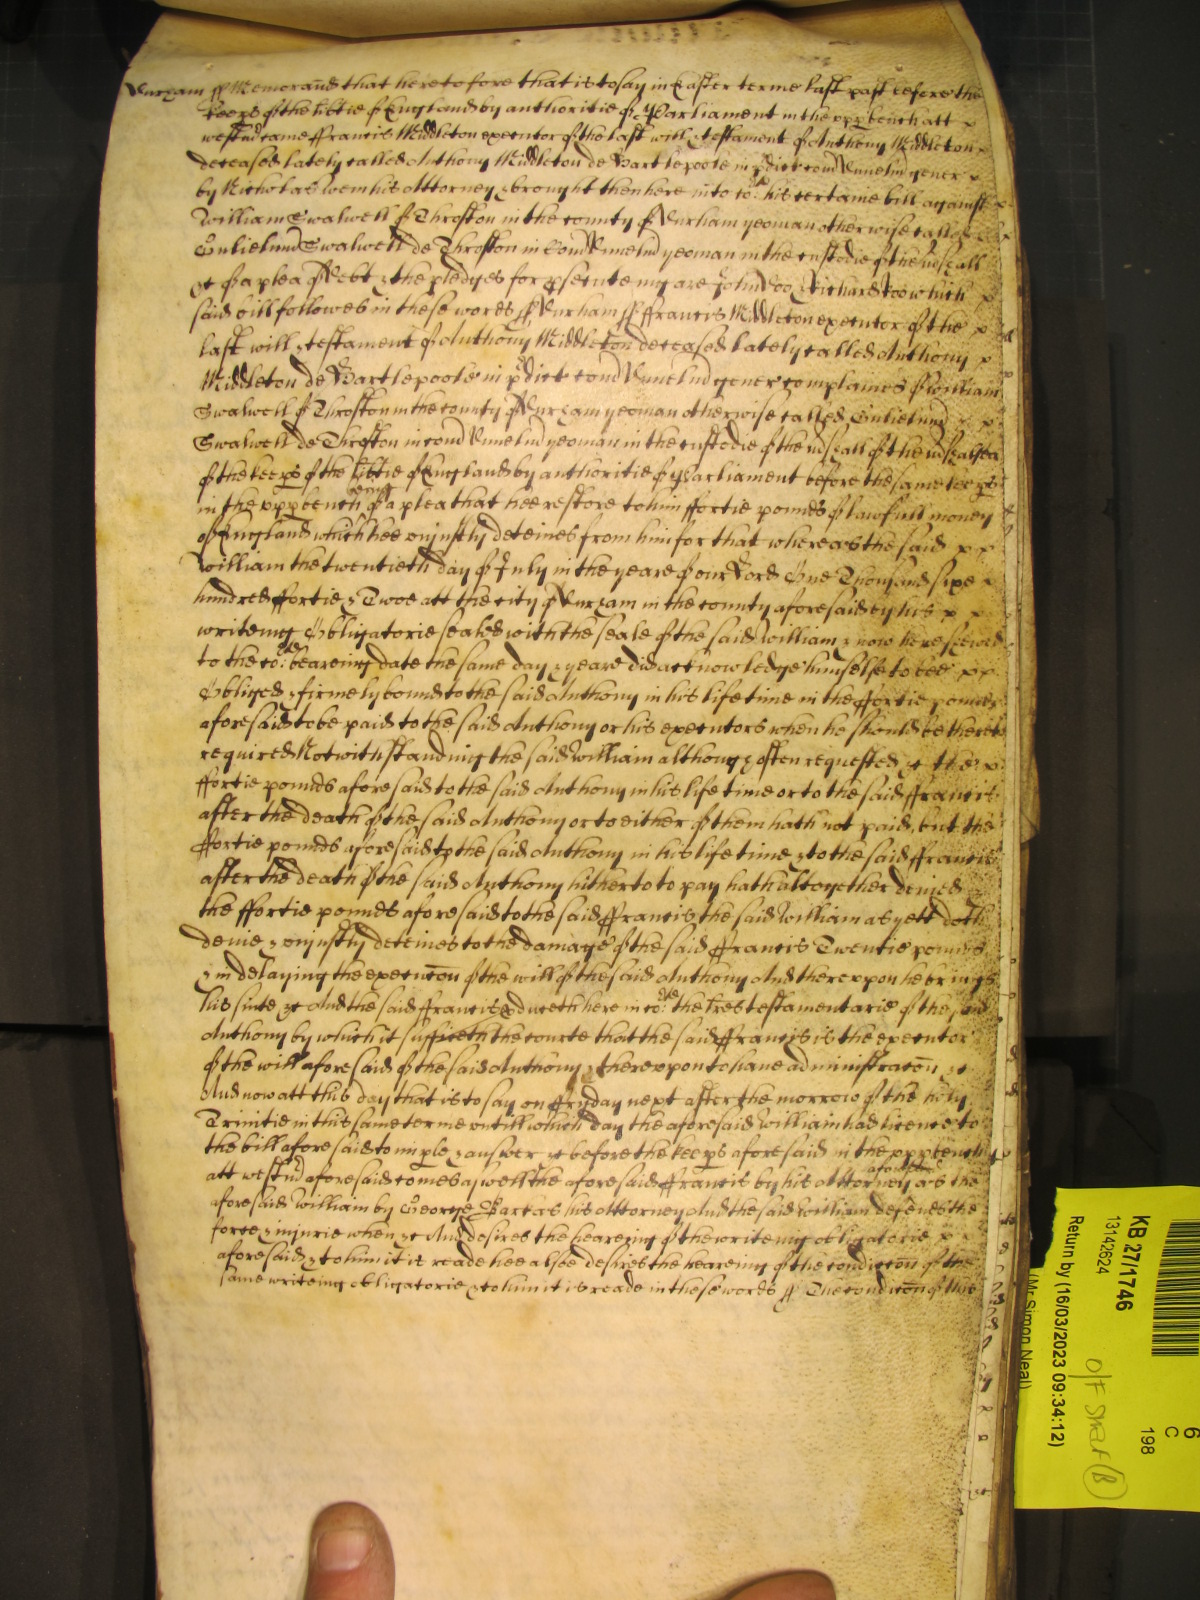 Durham ss Memorand that heretofore that is to say in Easter terme last past before the
keeps of the libtie of England by authoritie of Parliament in the upp bench att
westmr came ffrancis Middleton executor of the last will & testament of Anthony Middleton
deceased lately called Anthony Middleton de Hartlepoole in pdict com Dunelm gener
by Nicholas wem his Attorney & brought then here into Cort his certaine bill against
William Swalwell of Throston in the county of Durham yeoman otherwise called
Gulielmu Swalwell de Throston in Com Dunelm yeoman in the custodie of the mshall
&c of a plea of Debt & the pledges for psecuteing are John Doo & Richard Roo which
said bill followes in these words ss Durham ss ffrancis Middleton executor of the
last will & testament of Anthony Middleton deceased lately called Anthony
Middleton de Hartlepoole in pdict com Dunelm gener complaines of William
Swalwell of Throston in the county of Durham yeoman otherwise called Gulielmu
Swalwell de Throston in com Dunelm yeoman in the custodie of the mshall of the mshalsea
of the keeps of the libtie of England by authoritie of Parliament before the same keeps
in the upp bench being of a plea that hee restore to him ffortie pounds of lawfull money
of England which hee unjustly deteines from him for that whereas the said
William the twentieth day of July in the yeare of our Lord One Thousand sixe
hundred ffortie & Twoe att the city of Durham in the county aforesaid by his
writeing Obligatorie sealed with the seale of the said William & now here shewed
to the Cort beareing date the same day & yeare did acknowledge himselfe to bee
Obliged & firmely bound to the said Anthony in his life time in the ffortie pounds
aforesaid to be paid to the said Anthony or his executors when he should be thereto
required Notwithstanding the said William although often requested &c the
ffortie pounds aforesaid to the said Anthony in his life time or to the said ffrancis
after the death of the said Anthony or to either of them hath not paid, but the
ffortie pounds aforesaid to the said Anthony in his life time & to the said ffrancis
after the death of the said Anthony hitherto to pay hath altogether denied
the ffortie pounds aforesaid to the said ffrancis the said William as yett doth
denie & unjustly deteines to the damage of the said ffrancis Twentie pounds
& in delaying the execucon of the will of the said Anthony And thereupon he brings
his suite &c And the said ffrancis pduceth here in Cort the lres testamentarie of the said
Anthony by which it sufficeth the courte that the said ffrancis is the executor
of the will aforesaid of the said Anthony & thereupon to have administracon &c
And now att this day that is to say on ffryday next after the morrow of the holy
Trinitie in this same terme untill which day the aforesaid William had licence to
the bill aforesaid to imple & answer &c before the keeps aforesaid in the upp bench
att westmr aforesaid comes aswell the aforesaid ffrancis by his Attorney aforesaid as the
aforesaid William by George Parkes his Attorney And the said William defends the
force & injurie when &c And desires the heareing of the writeing obligatorie
aforesaid & to him it is reade hee alsoe desires the heareing of the condicon of the
same writeing obligatorie & to him it is reade in these words ss The condicon of this
KB 27/1746
13142624
Return by (16/03/2023 09:34:12)
(Mr Simon Neal)
6
C
198
O/F Shelf (B)